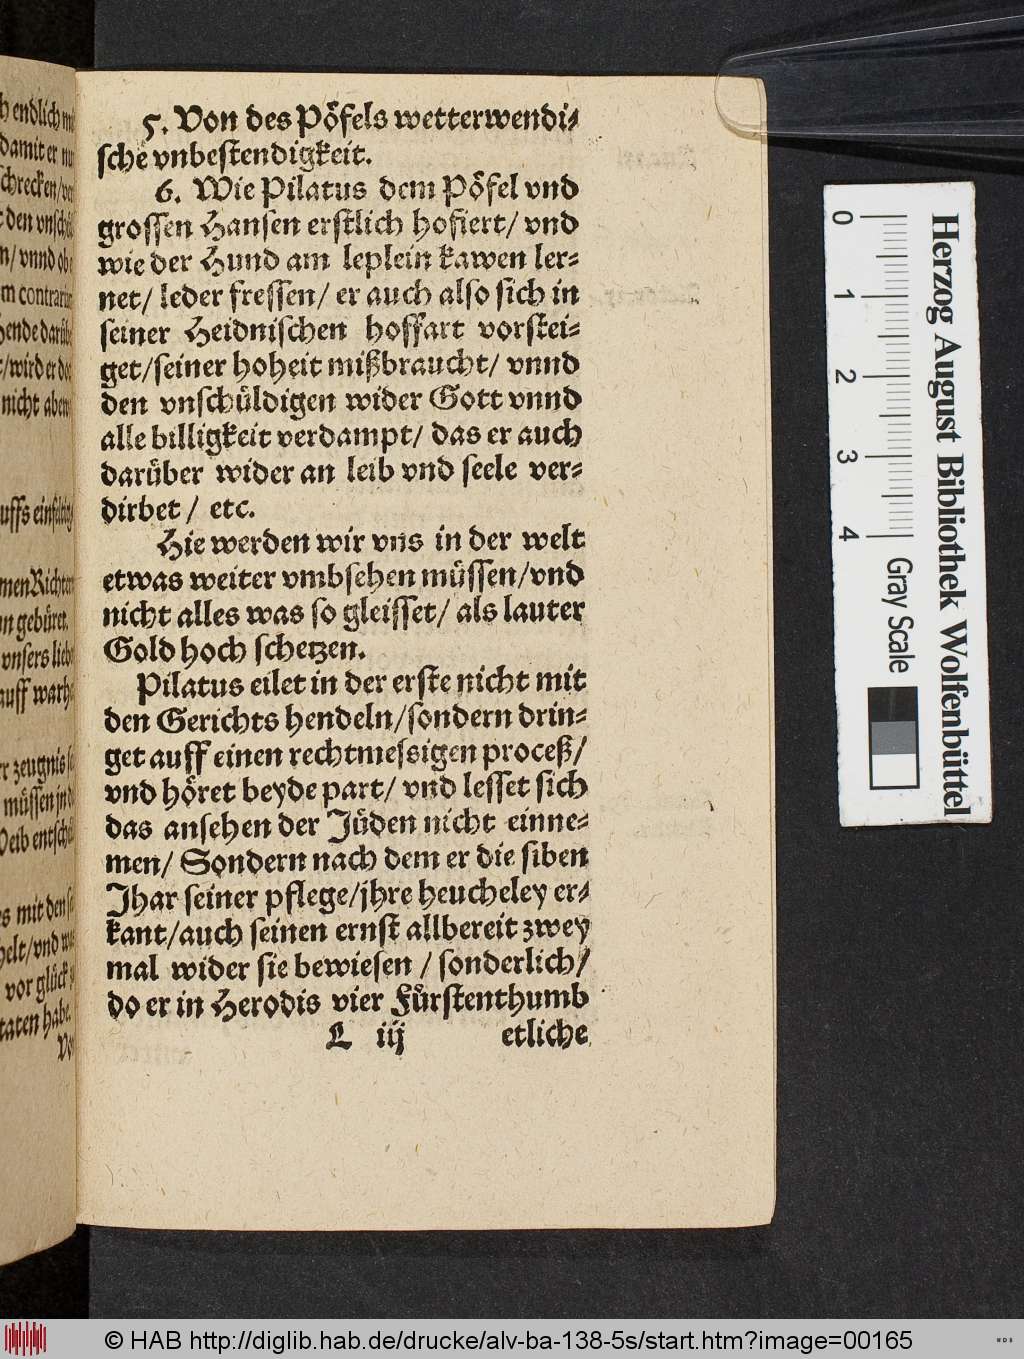 5. Von des Pöfels wetterwendi⸗
sche vnbestendigkeit.
6. Wie Pilatus dem Pöfel vnd
grossen Hansen erstlich hofiert/ vnd
wie der Hund am leplein kawen ler⸗
net/ leder fressen/ er auch also sich in
seiner Heidnischen hoffart vorstei⸗
get/seiner hoheit mißbraucht/ vnnd
den vnschüldigen wider Gott vnnd
alle billigkeit verdampt/ das er auch
darüber wider an leib vnd seele ver⸗
dirbet / etc.
Hie werden wir vns in der welt
etwas weiter vmbsehen müssen/vnd
nicht alles was so gleisset/ als lauter
Gold hoch schetzen.
Pilatus eilet in der erste nicht mit
den Gerichts hendeln/sondern drin⸗
get auff einen rechtmessigen proceß/
vnd höret beyde part/ vnd lesset sich
das ansehen der Jüden nicht einne⸗
men/ Sondern nach dem er die siben
Jhar seiner pflege/jhre heucheley er⸗
kant/auch seinen ernst allbereit zwey
mal wider sie bewiesen / sonderlich/
do er in Herodis vier Fürstenthumb
L iij etliche
endlich
damit er
schrecken/
den
vnnd
contrarium
wird er
nicht
auffs
Richter
gebüret.
vnsers
auff
zeugnis
müssen
mit den
vnd
vor glück
taten habe.
0 1 2 3 4
Gray Scale
Herzog August Bibliothek Wolfenbüttel
© HAB http://diglib.hab.de/drucke/alv-ba-138-5s/start.htm?image=00165
WDB